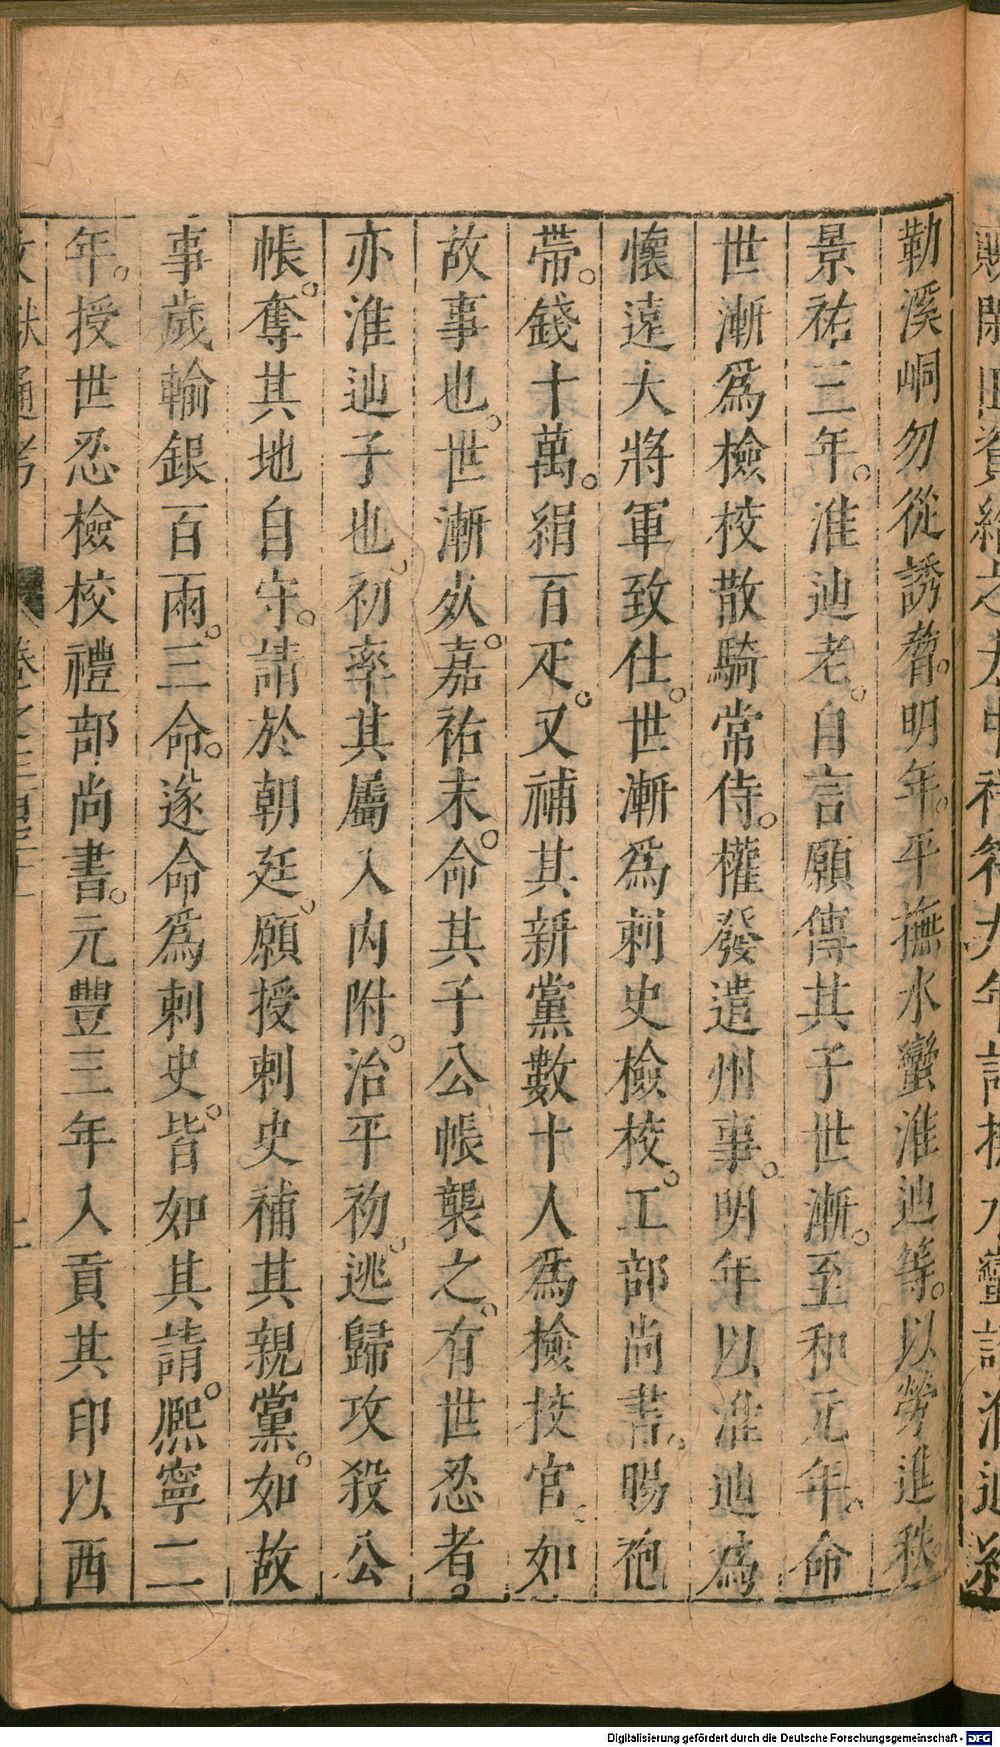 勒溪峒勿從誘脅。明年。平撫水蠻淮辿等。以勞進秩
景祐三年。淮辿老。自言願傳其子世漸。至和元年。命
世漸爲檢校散騎常侍。權發遣州事。明年以淮辿為
懷遠大將軍致仕。世漸爲刺史檢校。工部尚書。賜袍
帶。錢十萬。絹百疋。又補其新黨數十人爲檢技官。如
故事也。世漸死。嘉祐末。命其子公帳襲之。有世忍者。
亦淮辿子也。初率其屬入內附。治平初。逃歸攻殺公
帳。奪其地自守。請於朝廷。願授刺史補其親黨。如故
事歲輸銀百兩。三命。遂命爲刺史。皆如其請。熈寧二
年。授世忍檢校禮部尚書。元豐三年入貢其印以西
文獻通考 卷之三百三十一
Digitalisierung gefördert durch die Deutsche Forschungsgemeinschaft - DFG